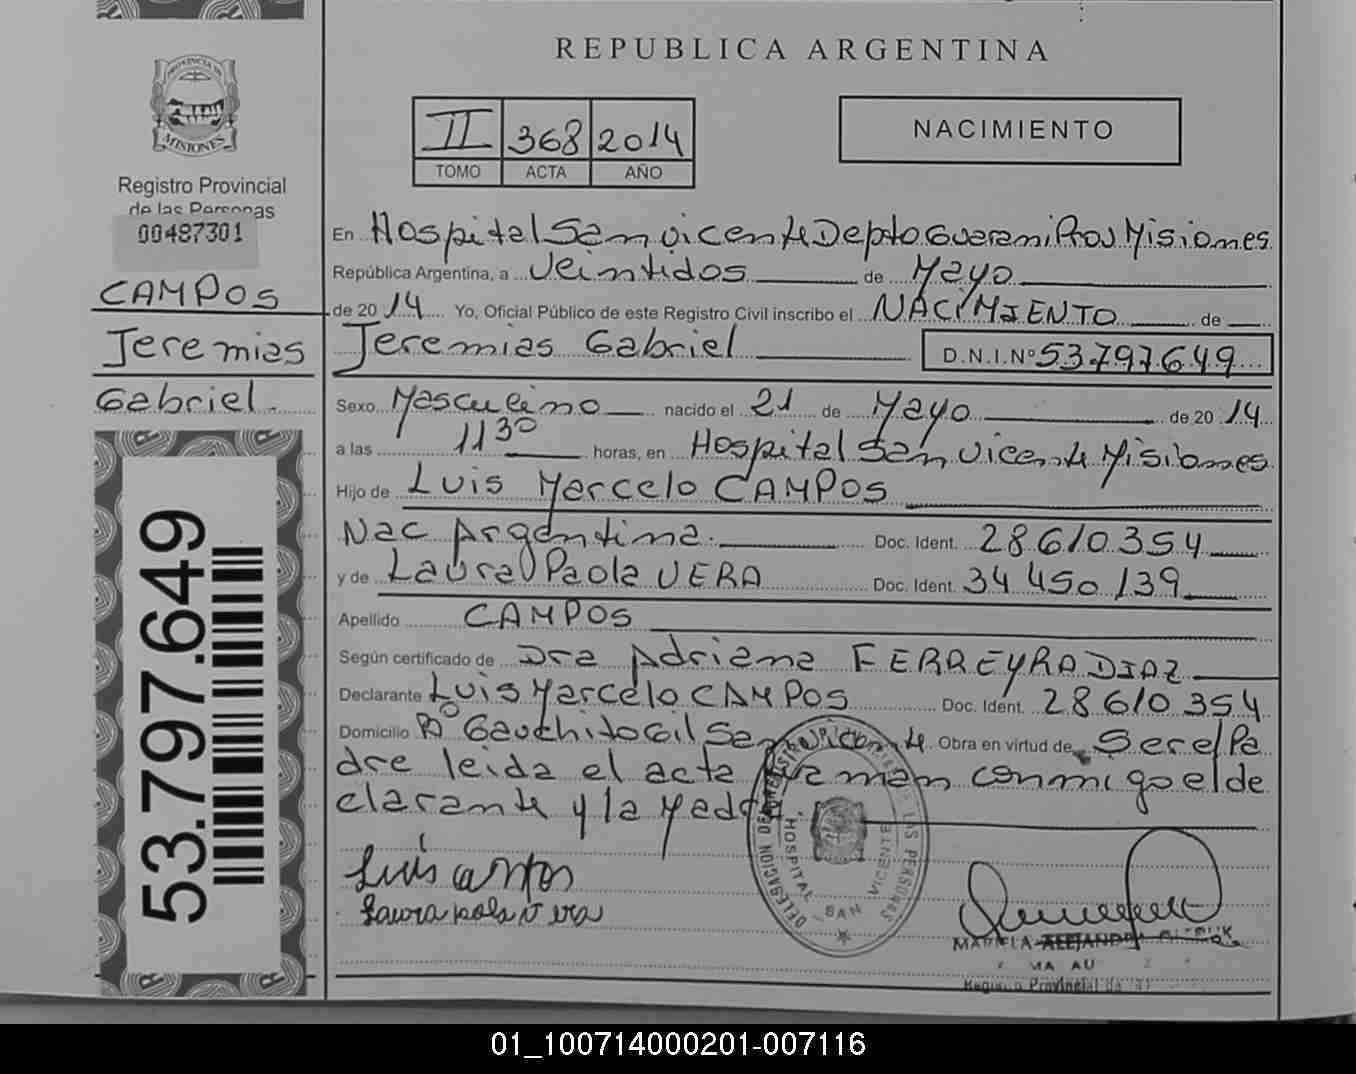 PROVINCIA DE
MISIONES
Registro Provincial
de las Personas
00487301
CAMPOS
Jeremias
Gabriel.
53.797.649
REPUBLICA ARGENTINA
II 368 2014
TOMO ACTA AÑO
NACIMIENTO
En Hospital San vicente Depto Guarani Prov Misiones
República Argentina, a veintidos de Mayo
de 20 14 Yo, Oficial Público de este Registro Civil inscribo el NACIMIENTO de
Jeremias Gabriel D.N.I.Nº 53.797.649
Sexo Masculino nacido el 21 de Mayo de 20 14
a las 11 30 horas, en Hospital San vicente Misiones
Hijo de Luis Marcelo CAMPOS
Nac Argentina. Doc. Ident. 28610354
y de Laura Paola VERA Doc. Ident. 34 450 139
Apellido CAMPOS
Según certificado de Dra Adriana FERREYRA DIAZ
Declarante Luis Marcelo CAMPOS Doc. Ident. 28610 354
Domicilio Bº Gauchito Gil San vicente Obra en virtud de Ser el Pa
dre leida el acta firman conmigo el de
clarante y la Madre.
Luis campos
Laura paola vera
DELEGACION DE REGISTRO LAS PERSONAS
HOSPITAL SAN VICENTE
ALEJANDRA
Provincial de
01_100714000201-007116